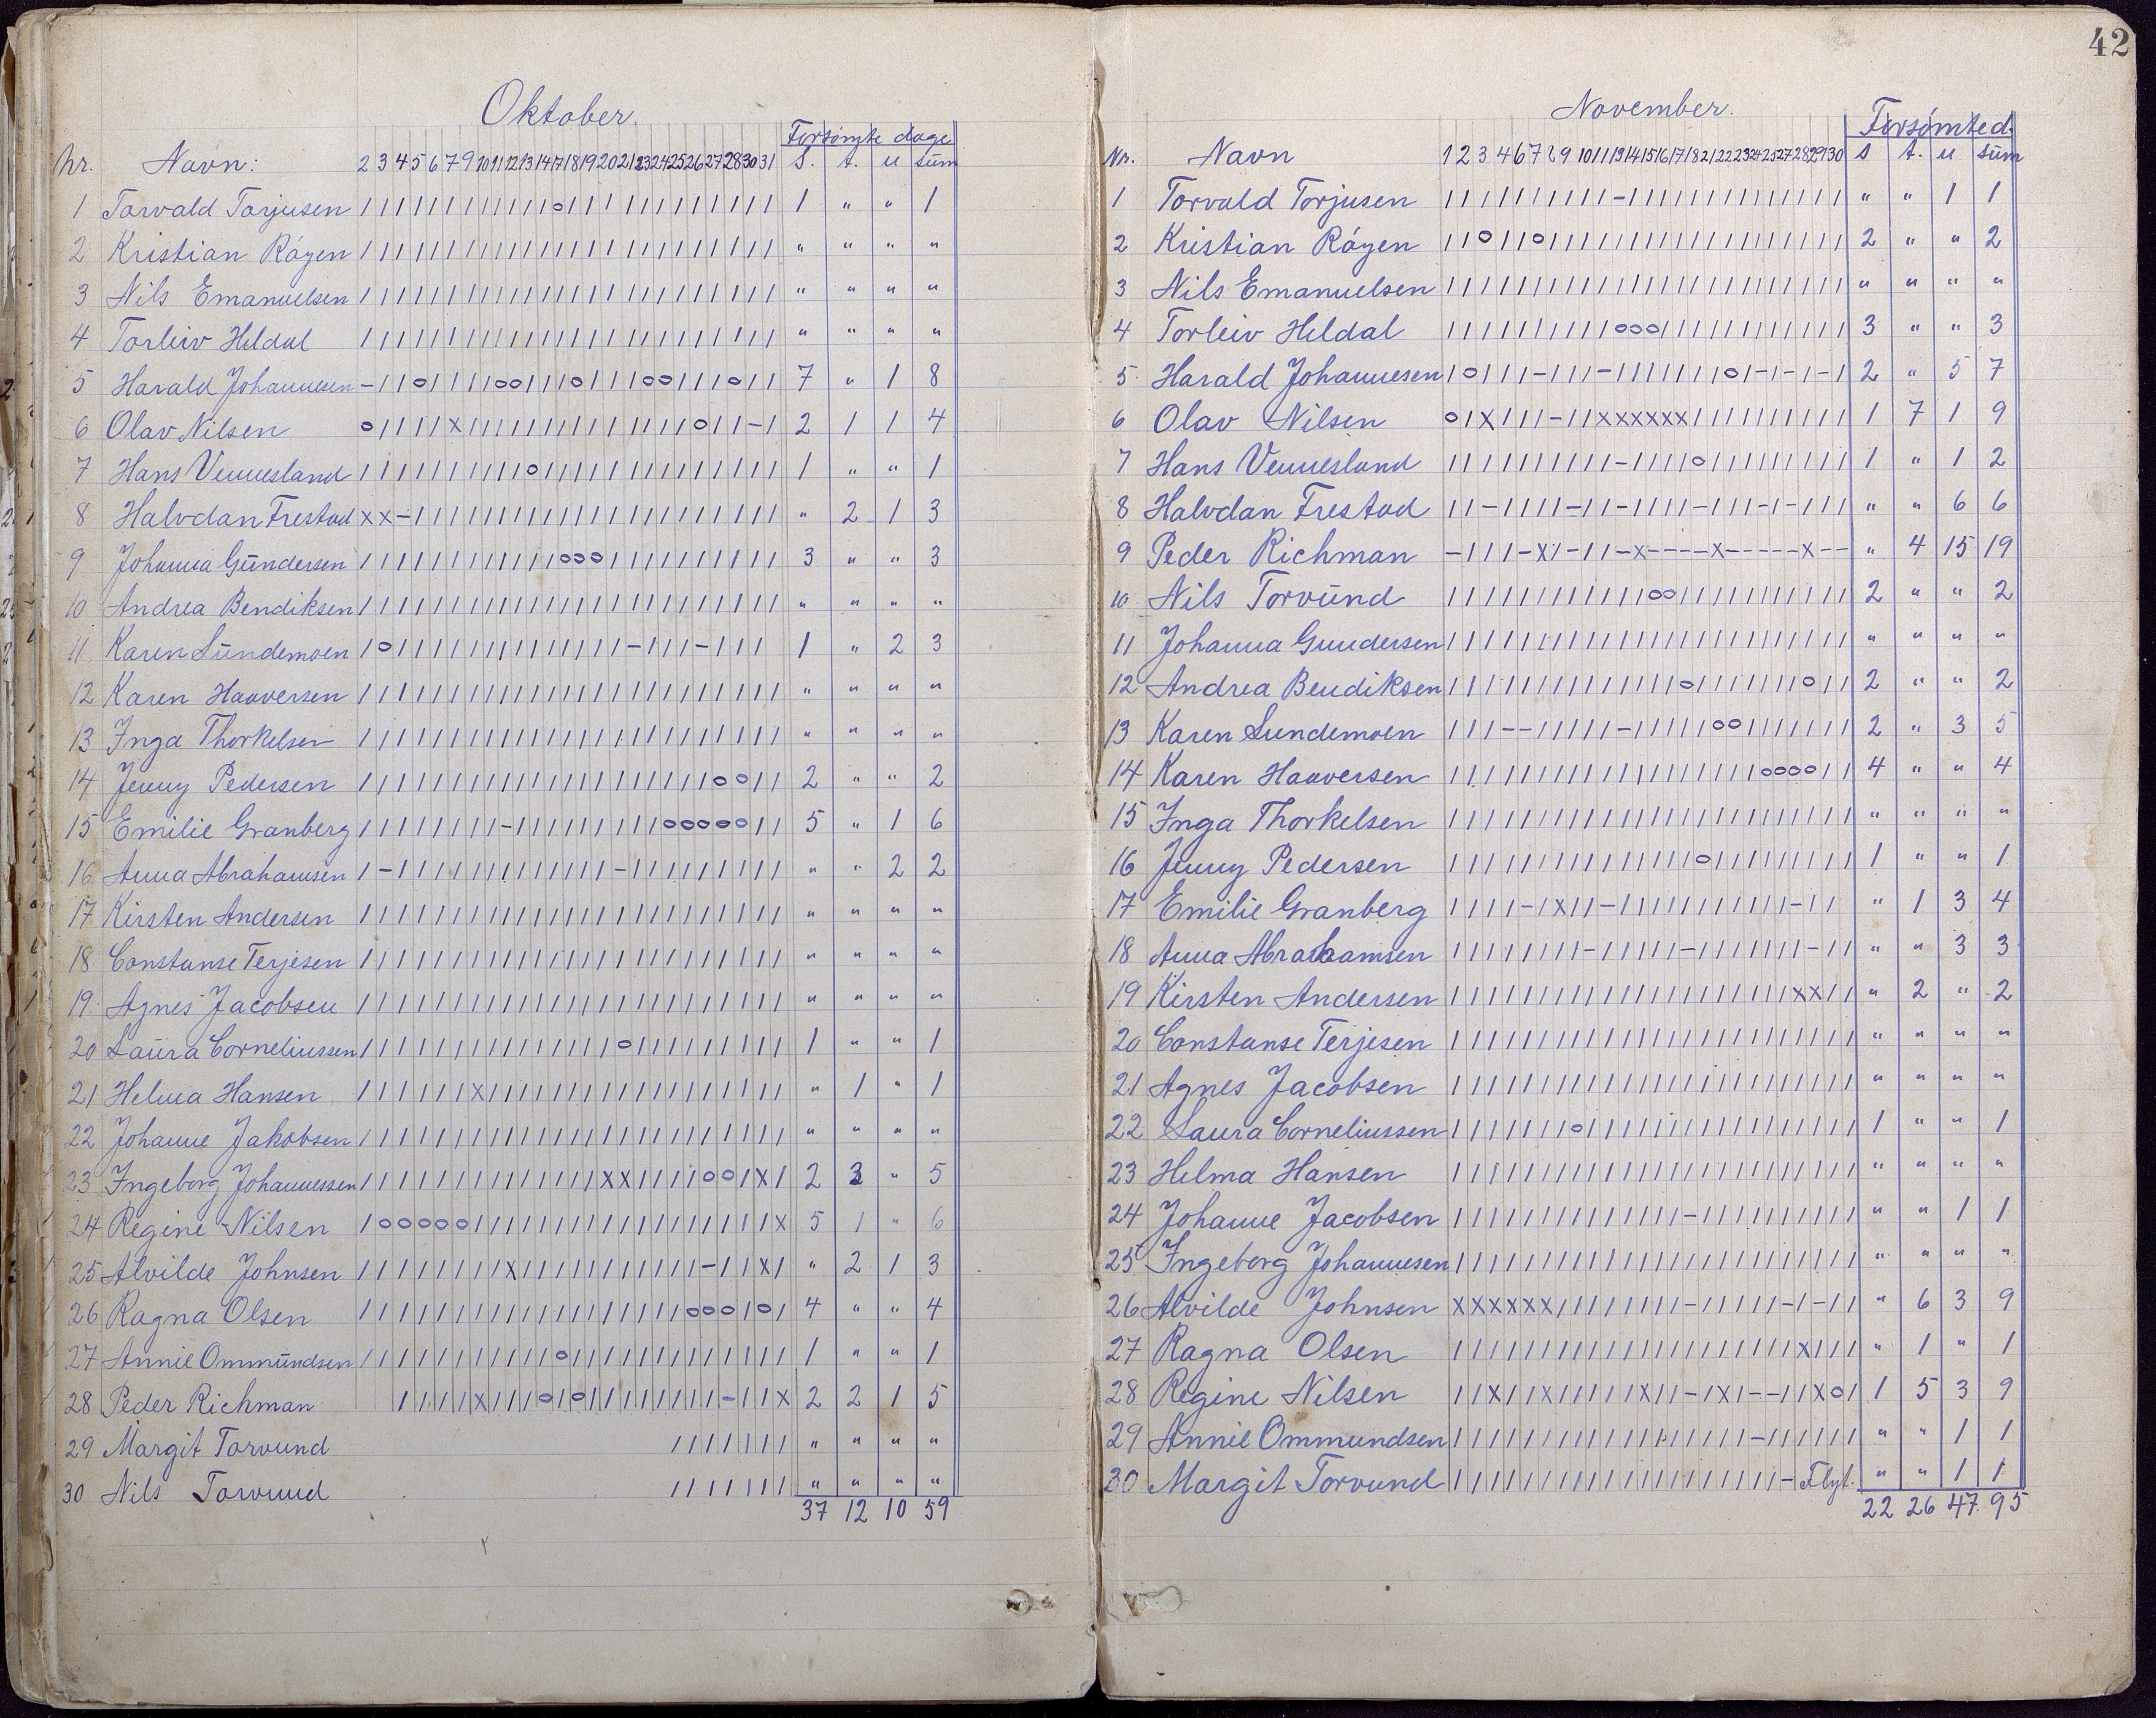 Oktober.
Forsømte dage
Nr. Navn: 2 3 4 5 6 7 9 10 11 12 13 14 17 18 19 20 21 23 24 25 26 27 28 30 31 s. t. u sum
1 Torvald Torjusen 1 " " 1
2 Kristian Røyen " " " "
3 Nils Emanuelsen " " " "
4 Torleiv Heldal " " " "
5 Harald Johannesen 7 " 1 8
6 Olav Nilsen 2 1 1 4
7 Hans Vennesland 1 " " 1
8 Halvdan Frestad " 2 1 3
9 Johanna Gundersen 3 " " 3
10 Andrea Bendiksen " " " "
11 Karen Sundemoen 1 " 2 3
12 Karen Haaversen " " " "
13 Inga Thorkelsen " " " "
14 Jenny Pedersen 2 " " 2
15 Emilie Granberg 5 " 1 6
16 Anna Abrahamsen " " 2 2
17 Kirsten Andersen " " " "
18 Constanse Terjesen " " " "
19 Agnes Jacobsen " " " "
20 Laura Corneliussen 1 " " 1
21 Helma Hansen " 1 " 1
22 Johanne Jakobsen " " " "
23 Ingeborg Johannessen 2 3 " 5
24 Regine Nilsen 5 1 " 6
25 Alvilde Johnsen " 2 1 3
26 Ragna Olsen 4 " " 4
27 Annie Ommundsen 1 " " 1
28 Peder Richman 2 2 1 5
29 Margit Torvund " " " "
30 Nils Torvund " " " "
37 12 10 59
42
November.
Forsømte d.
Nr. Navn 1 2 3 4 6 7 8 9 10 11 13 14 15 16 17 18 21 22 23 24 25 27 28 29 30 s t. u sum
1 Torvald Torjusen " " 1 1
2 Kristian Røyen 2 " " 2
3 Nils Emanuelsen " " " "
4 Torleiv Heldal 3 " " 3
5 Harald Johannesen 2 " 5 7
6 Olav Nilsen 1 7 1 9
7 Hans Vennesland 1 " 1 2
8 Halvdan Frestad " " 6 6
9 Peder Richman " 4 15 19
10 Nils Torvund 2 " " 2
11 Johanna Gundersen " " " "
12 Andrea Bendiksen 2 " " 2
13 Karen Sundemoen 2 " 3 5
14 Karen Haaversen 4 " " 4
15 Inga Thorkelsen " " " "
16 Jenny Pedersen 1 " " 1
17 Emilie Granberg " 1 3 4
18 Anna Abrahamsen " " 3 3
19 Kirsten Andersen " 2 " 2
20 Constanse Terjesen " " " "
21 Agnes Jacobsen " " " "
22 Laura Corneliussen 1 " " 1
23 Helma Hansen " " " "
24 Johanne Jacobsen " " 1 1
25 Ingeborg Johannesen " " " "
26 Alvilde Johnsen " 6 3 9
27 Ragna Olsen " 1 " 1
28 Regine Nilsen 1 5 3 9
29 Annie Ommundsen " " 1 1
30 Margit Torvund Flyt. " " 1 1
22 26 47 95